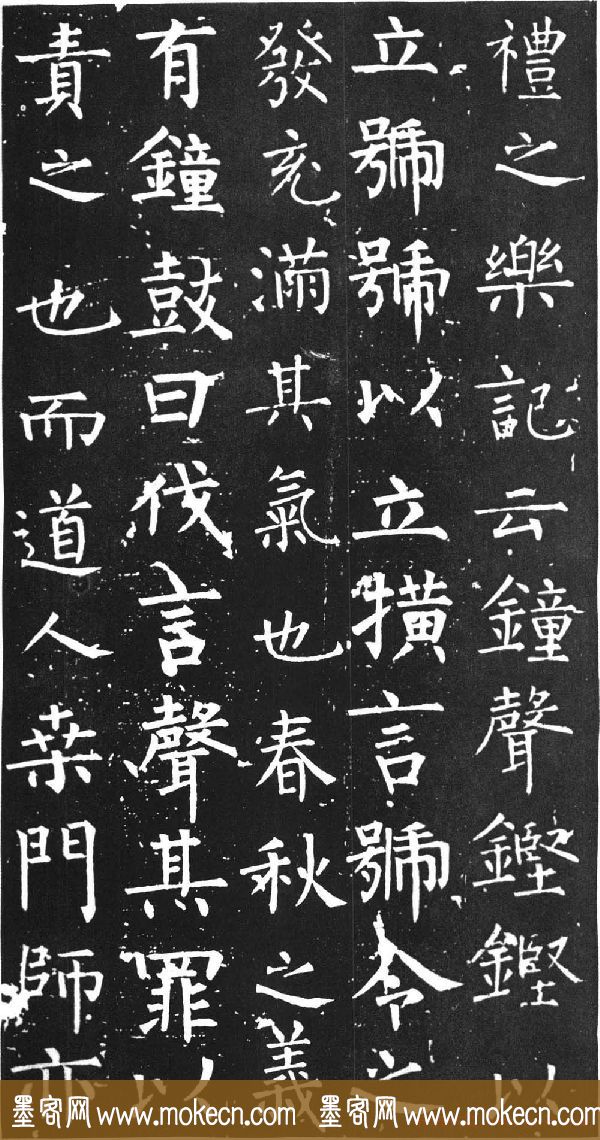 禮之樂記云鐘聲鏗鏗以
立號號以立撗言號令之
發充滿其氣也春秋之義
有鐘鼓曰伐言聲其罪以
責之也而道人桒門師亦
墨客网 www.mokecn.com 墨客网 www.mokecn.com